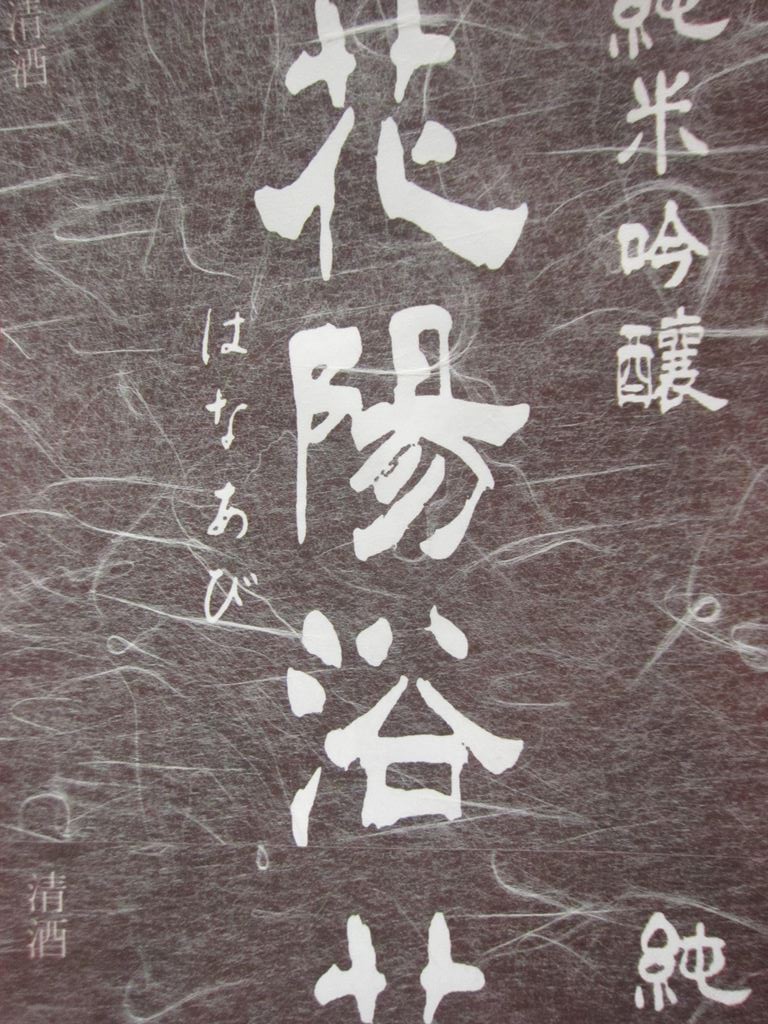 純米吟醸
花陽浴
はなあび
清酒
純
清酒